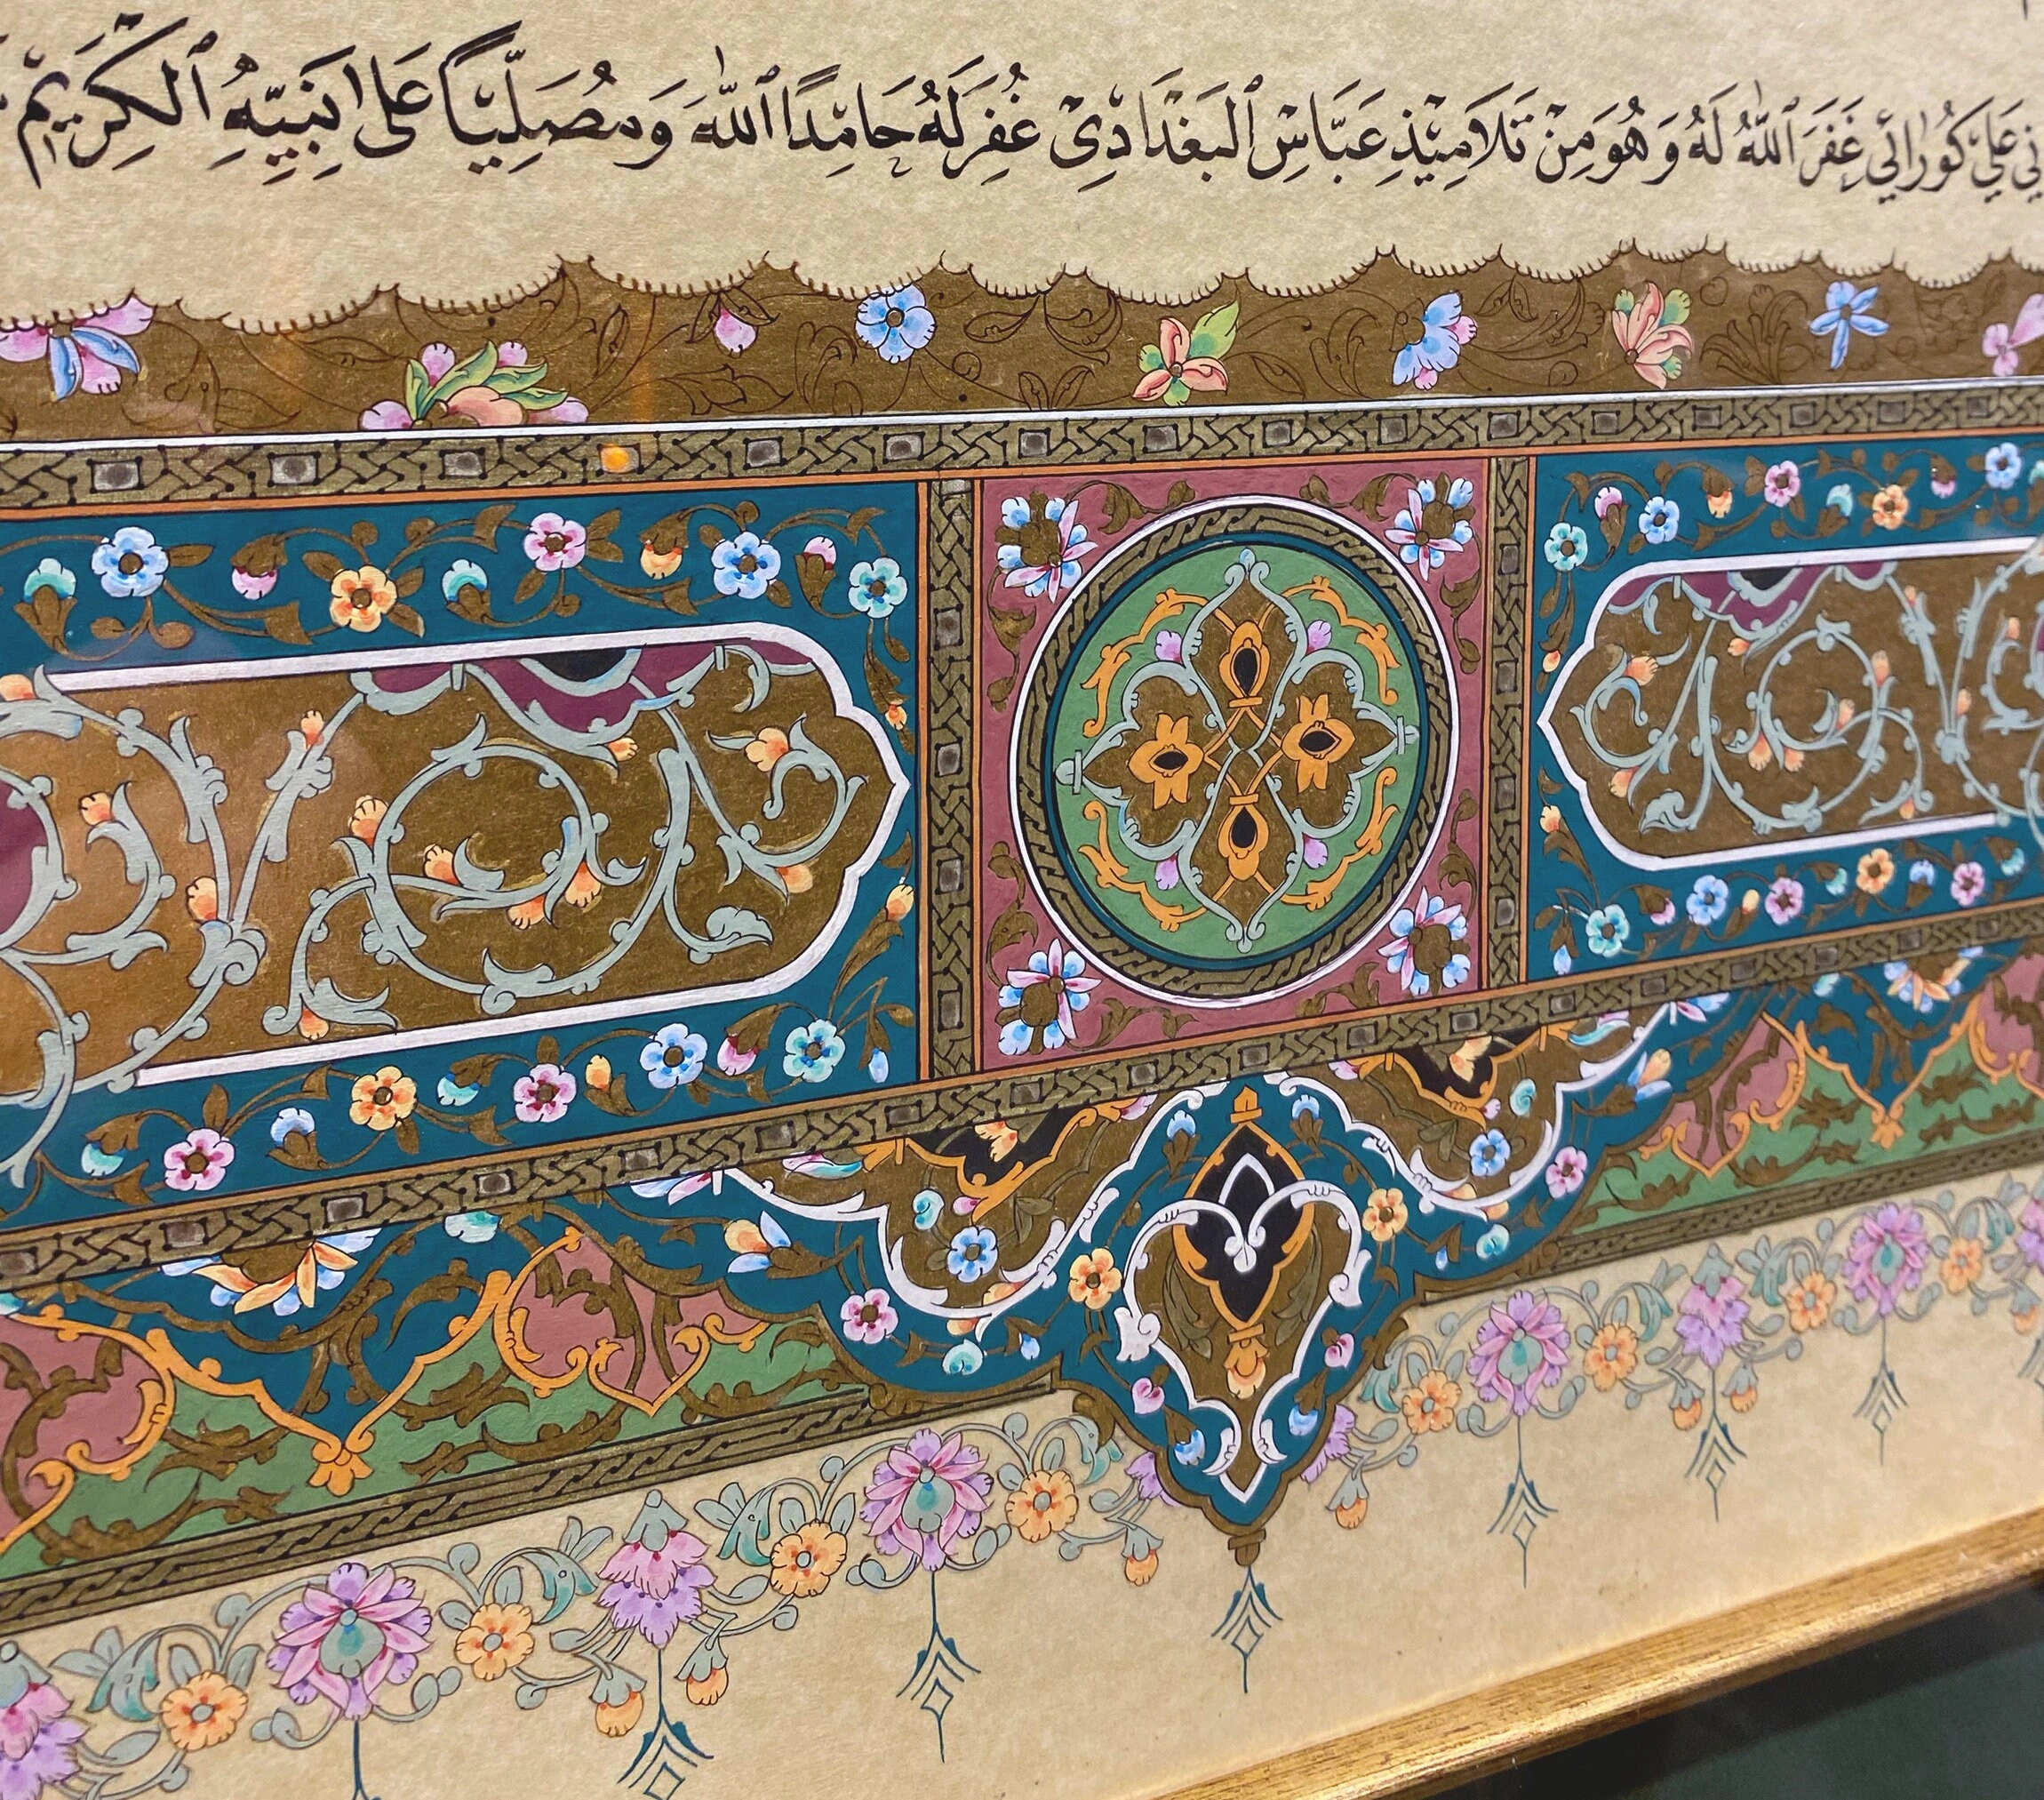 عَلِيّ كُورَائِي غَفَرَ ٱللّٰهُ لَهُ وَهُوَ مِنْ تَلَامِيْذِ عَبَّاسِ ٱلبَغْدَادِيْ غُفِرَ لَهُ حَامِدًا ٱللّٰهَ وَمُصَلِّيًا عَلَى نَبِيِّهِ ٱلكَرِيْمِ